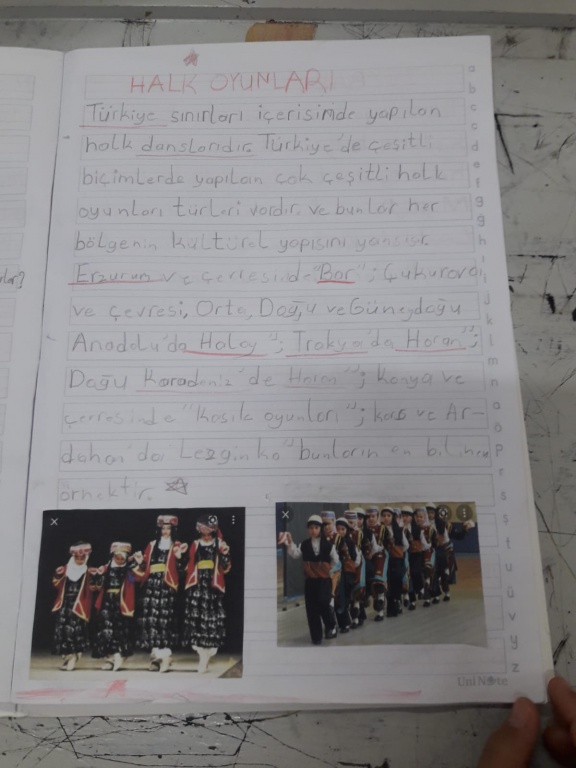 HALK OYUNLARI
Türkiye sınırları içerisinde yapılan
halk danslarıdır. Türkiye'de çeşitli
biçimlerde yapılan çok çeşitli halk
oyunları türleri vardır. ve bunlar her
bölgenin kültürel yapısını yansısır.
Erzurun ve çevresinde "Bar"; Çukurova
ve çevresi, Orta, Doğu ve Güneydoğu
Anadolu'da Halay"; Trakya'da Horan";
Doğu Karadeniz'de Horon"; konya ve
çevresinde "Kasık oyunları"; kas ve Ar-
dahan'da Lezginka" bunların en bilinen
örnektir.
a
b
c
ç
d
e
f
g
ğ
h
ı
i
j
k
l
m
n
o
ö
p
r
s
ş
t
u
ü
v
y
z
UniNote